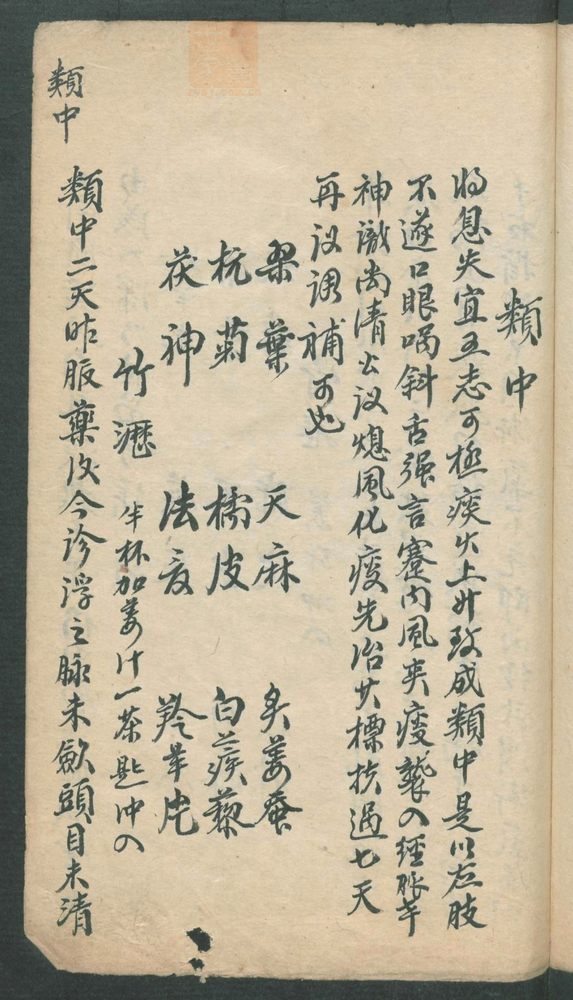 類中
將息失宜五志可極痰火上升致成類中是以左肢
不遂口眼喎斜舌强言蹇内風夾痰襲入經脉幸
神識尚清公议熄風化痰先治其標扶過七天
再议调補可也
桑葉 天麻 炙姜蚕
杭菊 橘皮 白蒺藜
茯神 法夏 羚羊片
竹瀝 半杯加姜汁一茶匙冲入
類中二天昨服藥後今診浮之脉未歛頭目未清
類中